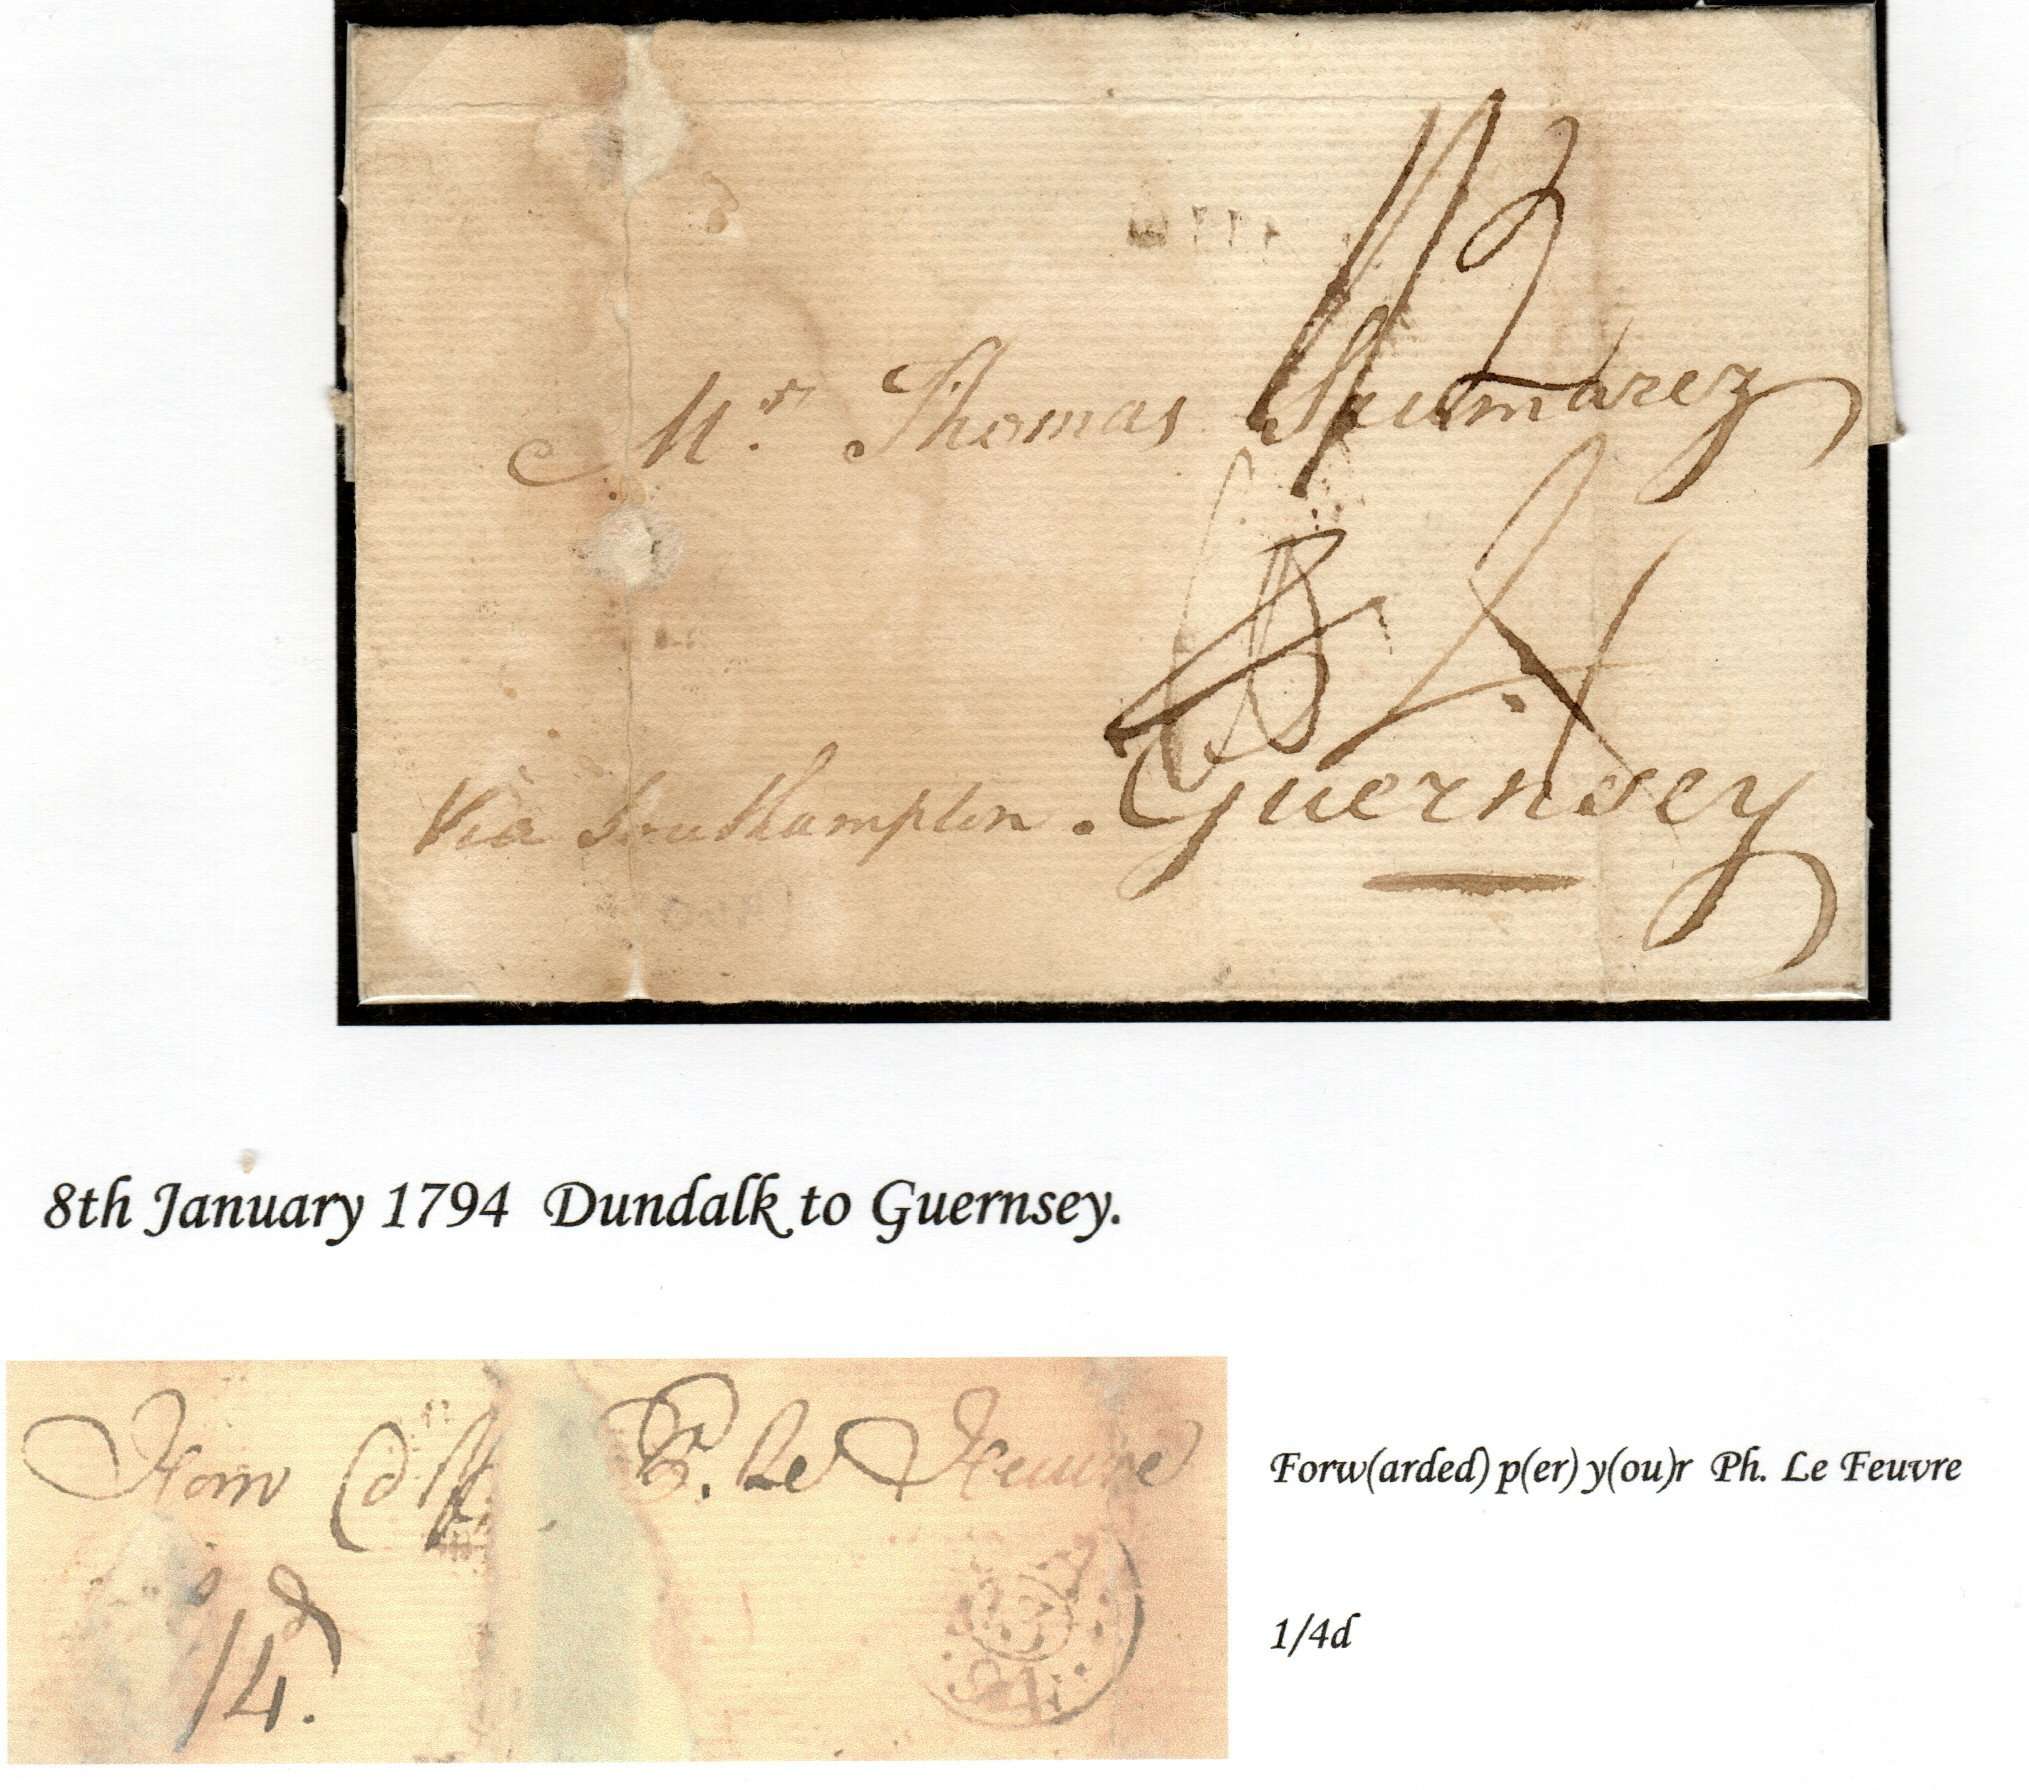 Mr. Thomas Saumarez
Via Southampton. Guernsey
8th January 1794 Dundalk to Guernsey.
P. Le Feuvre
Forw(arded) p(er) y(ou)r Ph. Le Feuvre
1/4d
1/4d